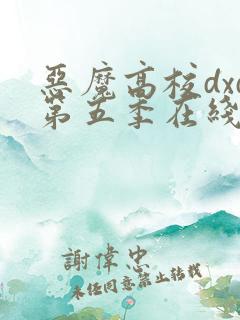 惡魔高校dxd
第五季在綫
謝偉忠
未任同意禁止转载